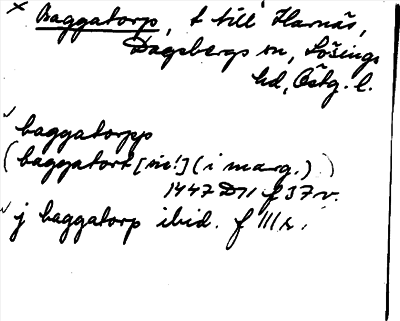 × Baggatorp, t till Harnäs,
Dagsbergs sn, Lösings
hd, Östg. l.
baggatorpp
(baggatort [sic!] (i marg.))
1447 D 11 f 37 v.
j baggatorp ibid. f 111 r.